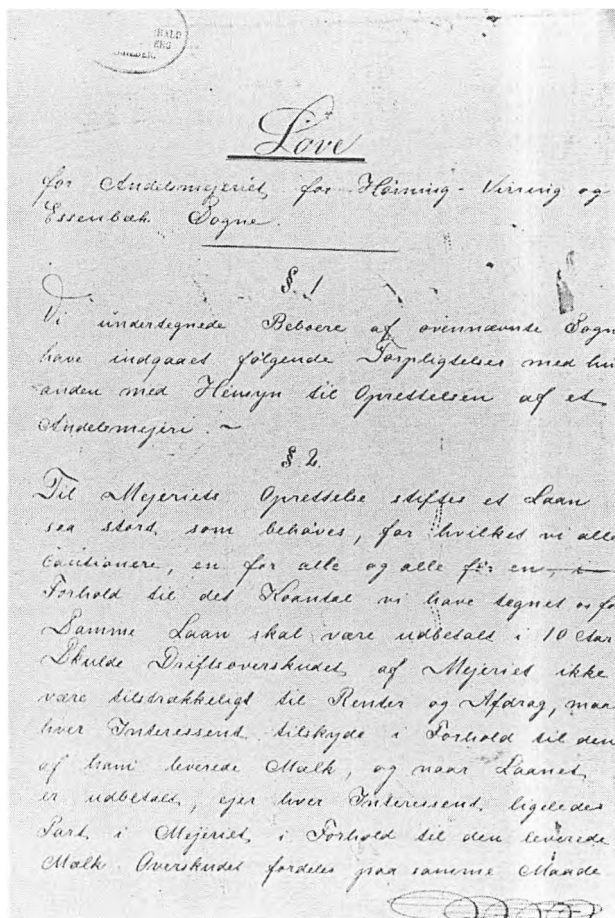 HALD
BERG
HEDER.
Love
for Andelsmejeriet for Hørning - Virring og
Essenbæk Sogne.
§. 1
Vi undertegnede Beboere af ovennævnte Sogn
have indgaaet følgende Forpligtelser med hin
anden med Hensyn til Oprettelsen af et
Andelsmejeri. ~
§. 2.
Til Mejeriets Oprettelse stiftes et Laan
saa stort som behøves, for hvilket vi alle
cautionere, en for alle og alle for en, i
Forhold til det Koantal vi have tegnet os for
Samme Laan skal være udbetalt i 10 Aar
Skulde Driftsoverskudet af Mejeriet ikke
være tilstrækkeligt til Renter og Afdrag, maa
hver Interessent tilskyde i Forhold til den
af ham leverede Mælk, og naar Laanet
er udbetalt, ejer hver Interessent ligeledes
Part i Mejeriet i Forhold til den leverede
Mælk. Overskudet fordeles paa samme Maade